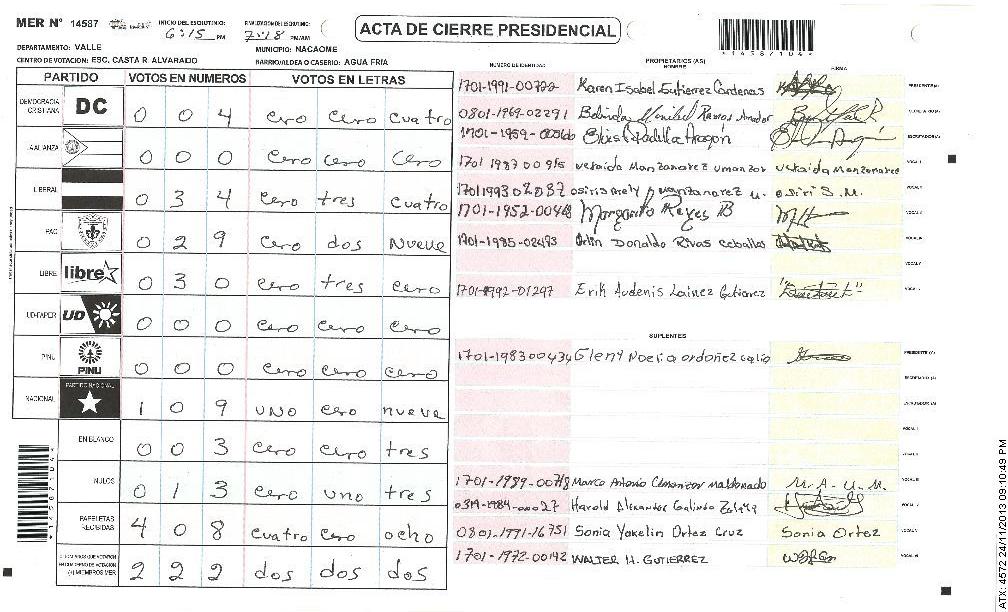 MER N° 14587 INICIO DEL ESCRUTINIO: 6:15 PM FINALIZACION DEL ESCRUTINIO: 7:18 PM/AM
ACTA DE CIERRE PRESIDENCIAL
*14587104*
DEPARTAMENTO: VALLE MUNICIPIO: NACAOME
CENTRO DE VOTACION: ESC. CASTA R. ALVARADO BARRIO/ALDEA O CASERIO: AGUA FRIA
PARTIDO VOTOS EN NUMEROS VOTOS EN LETRAS
DEMOCRACIA CRISTIANA DC 0 0 4 cero cero cuatro
ALIANZA 0 0 0 cero cero cero
LIBERAL 0 3 4 cero tres cuatro
PAC 0 2 9 cero dos Nueve
LIBRE libre 0 3 0 cero tres cero
UD-FAPER UD 0 0 0 cero cero cero
PINU PINU 0 0 0 cero cero cero
NACIONAL PARTIDO NACIONAL 1 0 9 uno cero nueve
EN BLANCO 0 0 3 cero cero tres
NULOS 0 1 3 cero uno tres
PAPELETAS RECIBIDAS 4 0 8 cuatro cero ocho
(+) MIEMBROS MER 2 2 2 dos dos dos
NUMERO DE IDENTIDAD PROPIETARIOS (AS) NOMBRE FIRMA
1701-1991-00722 Karen Isabel Gutierrez Cardenas PRESIDENTE (A)
0801-1969-02291 Belinda Ramos Amador
1701-1959- Elvis Padilla Aragón ESCRUTADOR (A)
1701 1987 00915 Manzanarez umanzor Manzanarez VOCAL I
1701 1993 02087 osiris arely manzanarez u. osiri S.M. VOCAL II
1701-1952-00468 Margarito Reyes B
1701-1985-02493 Donaldo Rivas ceballos
1701-1992-01297 Erik Audenis Lainez Gutierrez
SUPLENTES
1701-1983 00434 Gleny Noelia ordoñez PRESIDENTE (A)
SECRETARIO (A)
ESCRUTADOR (A)
VOCAL I
1701-1989-00718 Marco Antonio Umanzor Maldonado M. A. U. M.
0319-1984-00027 Harold Alexander Galindo
0801-1991-16751 Sonia Yakelin Ortez Cruz Sonia Ortez
1701-1972-00142 WALTER H. GUTIERREZ
*14587104*
ATX: 4572 24/11/2013 09:10:49 PM